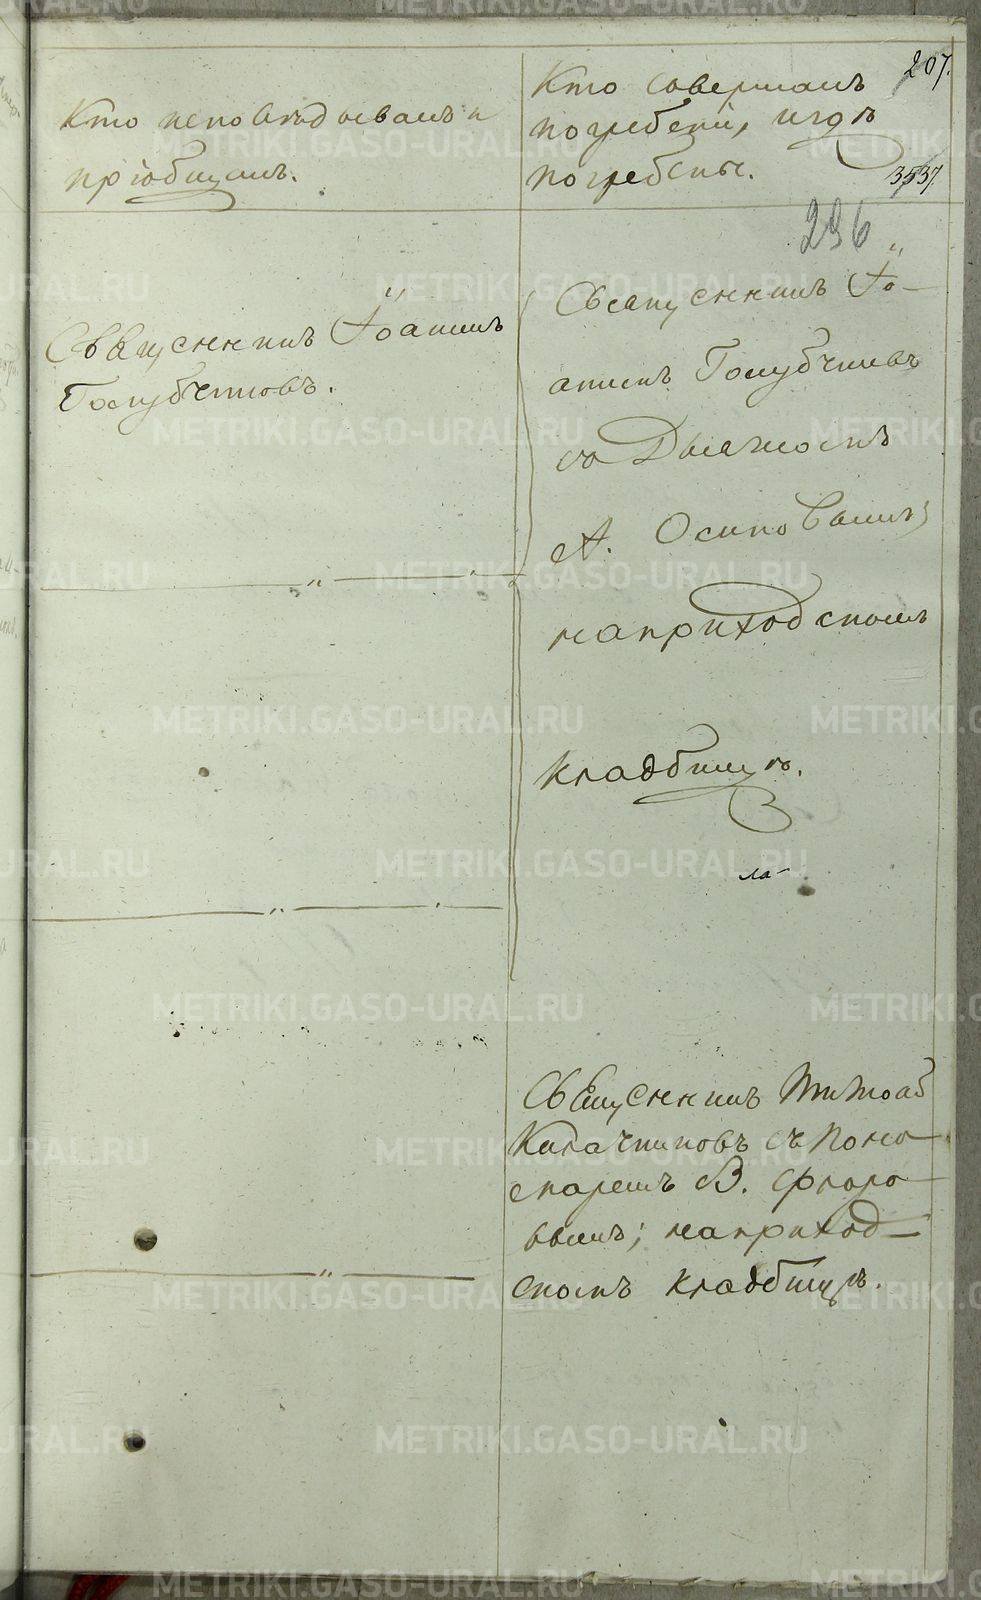 207.
Кто исповѣдывалъ и
пріобщалъ.
Кто совершалъ
погребеніе, и гдѣ
погребены.
3537.
236
Священникъ Іоаннъ
Голубчиковъ.
Священникъ Іо-
аннъ Голубчиковъ
со Дьячкомъ
А. Осиповымъ;
на приходскомъ
кладбищѣ.
ла
Священникъ Тимоѳей
Калачниковъ съ поно-
маремъ В. Флоро-
вымъ; на приход-
скомъ кладбищѣ.
METRIKI.GASO-URAL.RU